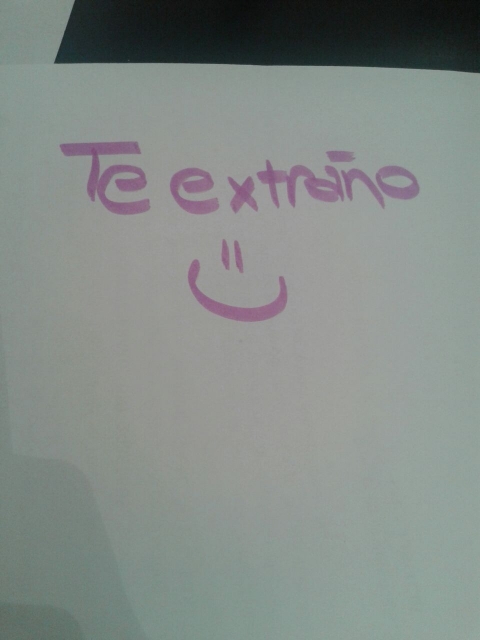 Te extraño